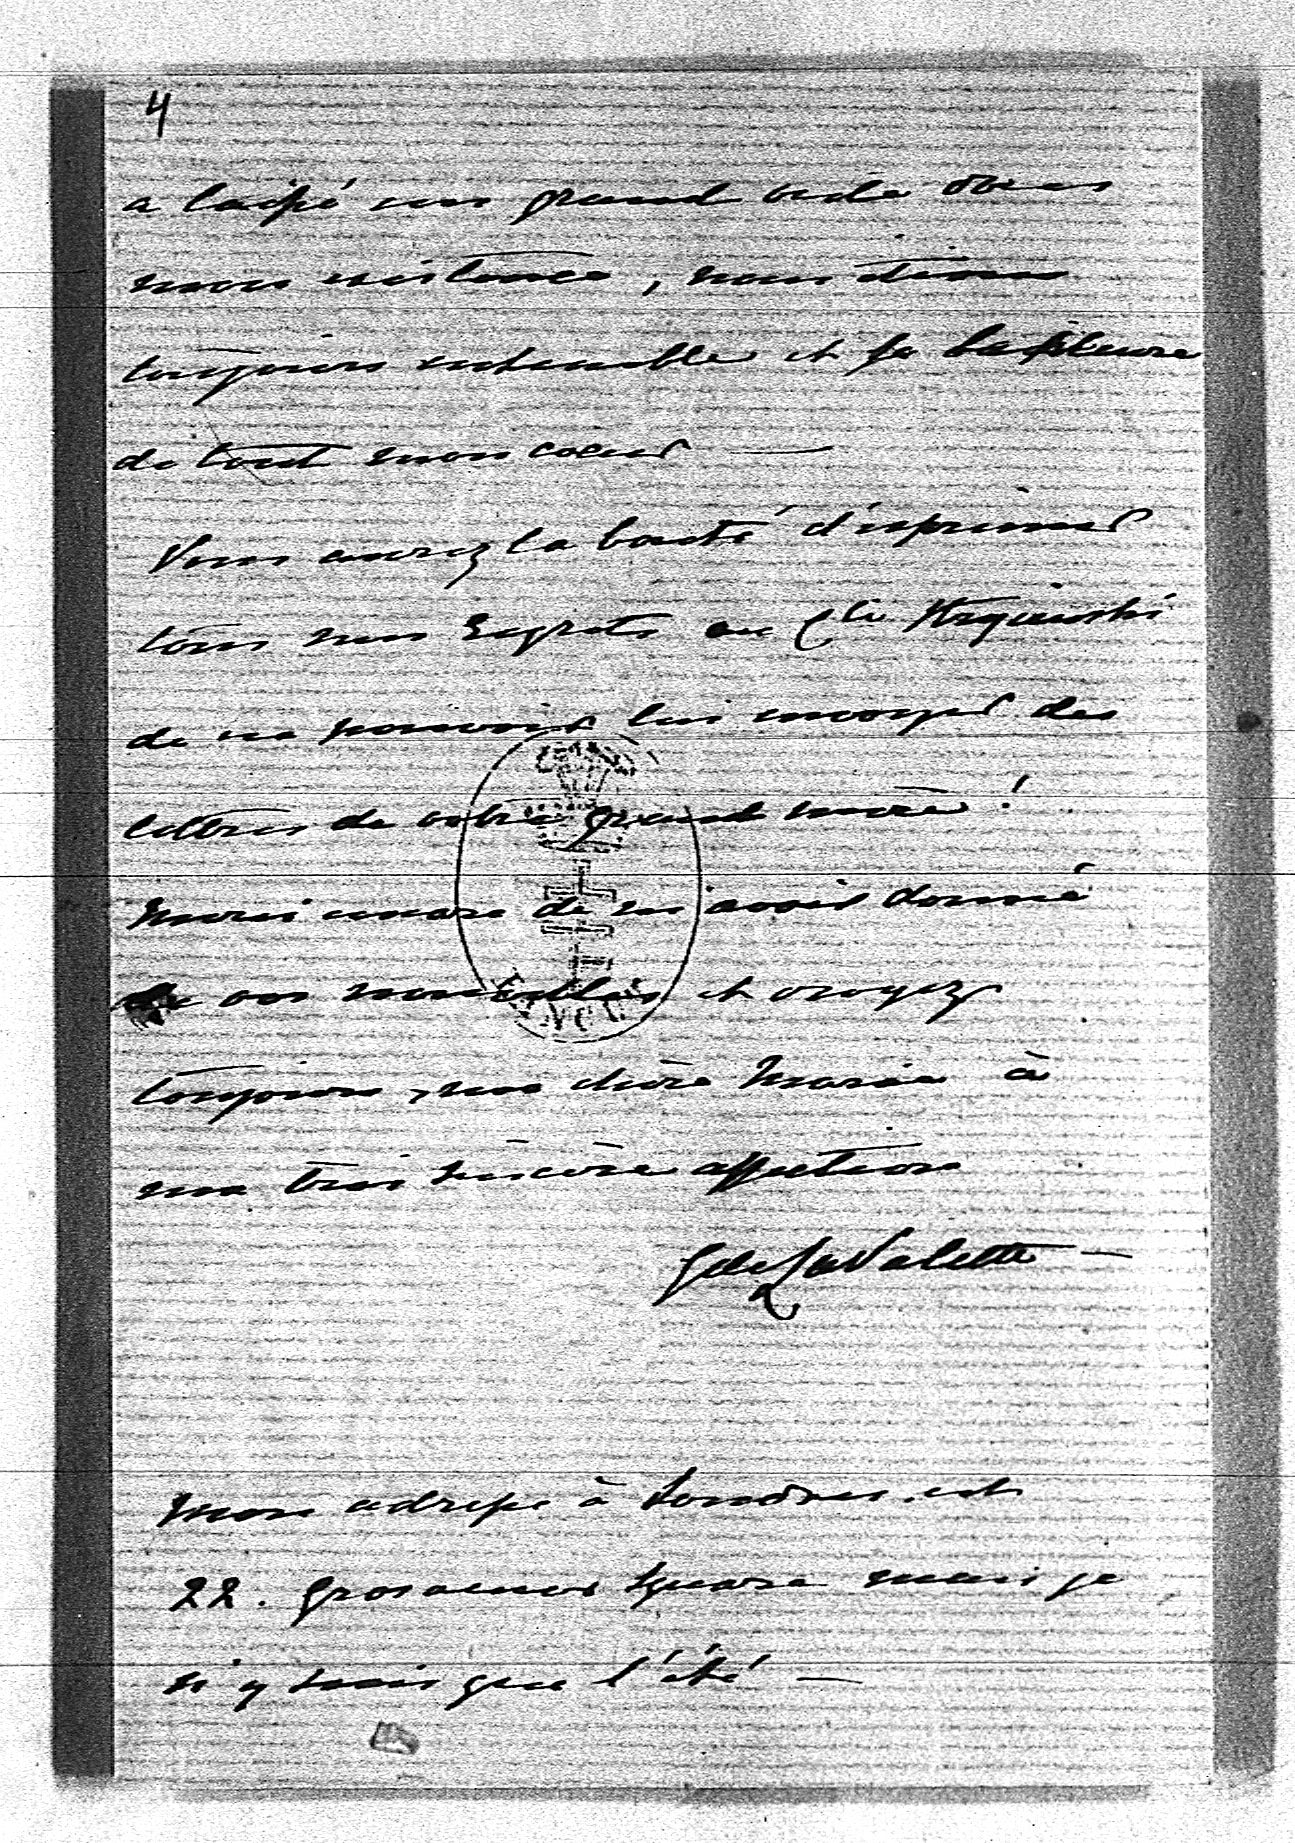 4
a laissé un grand vide dans
mon existence, nous étions
toujours ensemble et je la pleure
de tout mon coeur —
Vous aurez la bonté d'exprimer
tous mes regrets au Cte
de ne pouvoir lui envoyer des
lettres de votre grand mère !
Merci encore de m'avoir donné
de vos nouvelles et croyez
toujours, ma chère Marie à
ma très sincère affection
G de La Valette —
Mon adresse à Londres est
22. Grosvenor Square mais je
n'y suis que l'été —